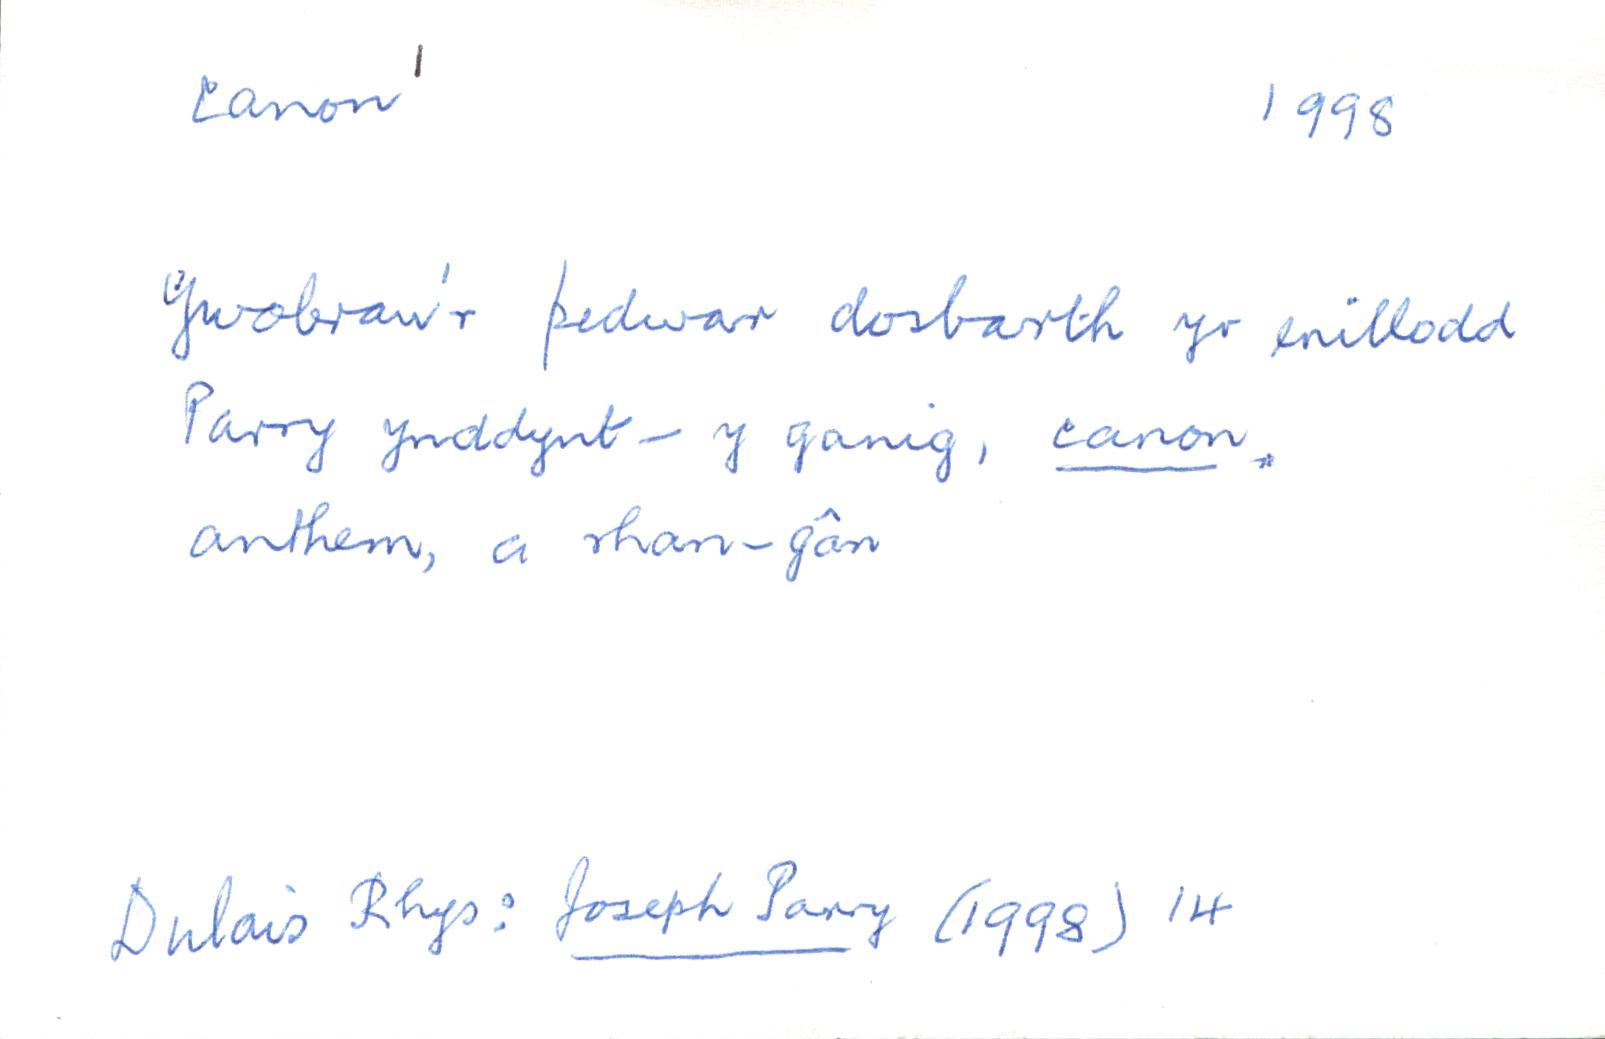 canon¹ 1998
Gwobrau'r pedwar dosbarth yr enillodd
Parry ynddynt – y ganig, canon,
anthem, a rhan-gân
Dulais Rhys: Joseph Parry (1998) 14